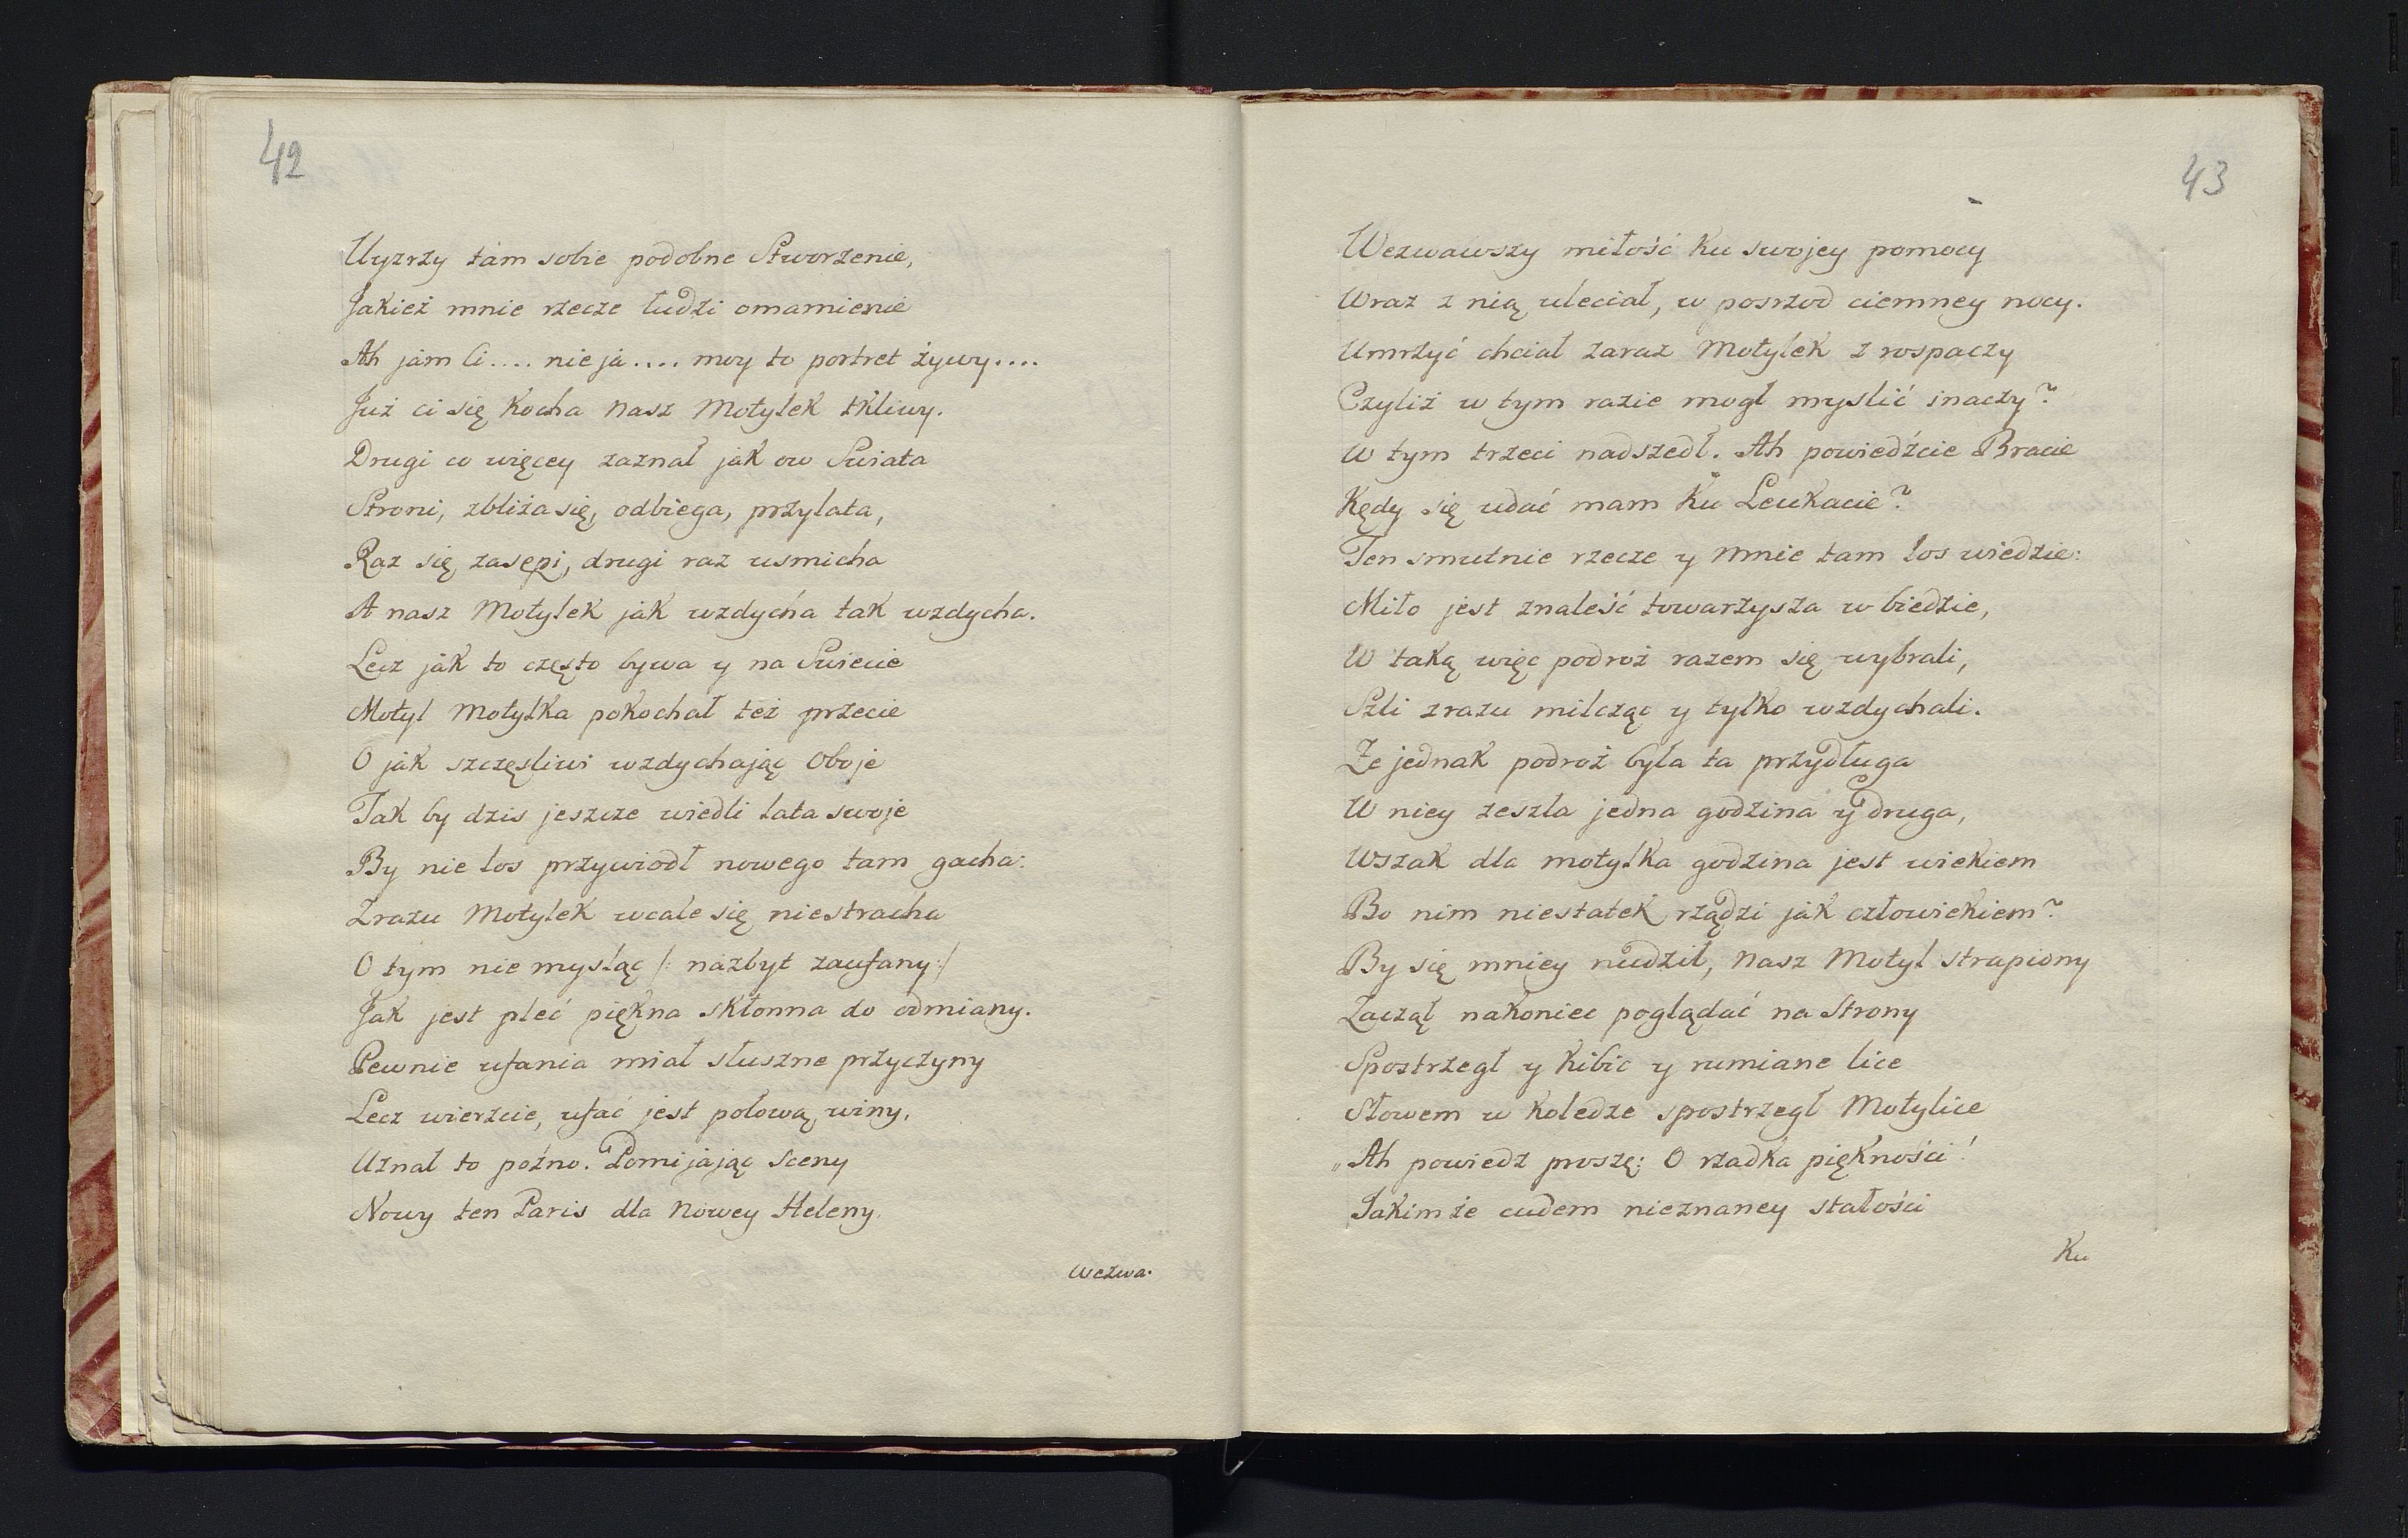 42
Uyzrzy tam sobie podobne Stworzenie,
Jakież mnie rzecze łudzi omamienie
Ah jam li.... nie ja.... moy to portret żywy....
Już ci się kocha nasz Motylek tkliwy.
Drugi co więcey zaznał jak ow Swiata
Stroni, zbliża się, odbiega, przylata,
Raz się zasępi, drugi raz usmicha
A nasz Motylek jak wzdycha tak wzdycha.
Lecz jak to często bywa y na Swiecie
Motyl Motylka pokochał też przecie
O jak szczęsliwi wzdychając oboje
Tak by dzis jeszcze wiedli lata swoje
By nie los przywiodł nowego tam gacha:
Zrazu Motylek wcale się niestracha
O tym nie mysląc /: nazbyt zaufany:/
Jak jest płeć piękna skłonna do odmiany.
Pewnie ufania miał słuszne przyczyny
Lecz wierzcie, ufać jest połową winy.
Uznał to poźno. Pomijając Sceny
Nowy ten Paris dla Nowey Heleny
Wezwa.
43
Wezwawszy miłość ku swojey pomocy
Wraz z nią uleciał, w posrzod ciemney nocy.
Umrzyć chciał zaraz Motylek z rospaczy
Czyliż w tym razie mogł myslić inaczy?
W tym trzeci nadszedł. Ah powiedźcie Bracie
Kędy się udać mam ku Leukacie?
Ten smutnie rzecze y mnie tam los wiedzie:
Miło jest znaleść towarzysza w biedzie,
W taką więc podroż razem się wybrali,
Szli zrazu milcząc y tylko wzdychali.
Że jednak podroż była ta przydługa
W niey zeszła jedna godzina y druga,
Wszak dla motylka godzina jest wiekiem
Bo nim niestatek rządzi jak człowiekiem?
By się mniey nudził, nasz Motyl strapiony
Zaczął nakoniec poglądać na Strony
Spostrzegł y kibic y rumiane lice
Słowem w koledze spostrzegł Motylice
„Ah powiedz proszę: O rzadka piękności!
Jakimże cudem nieznaney stałości
Ku